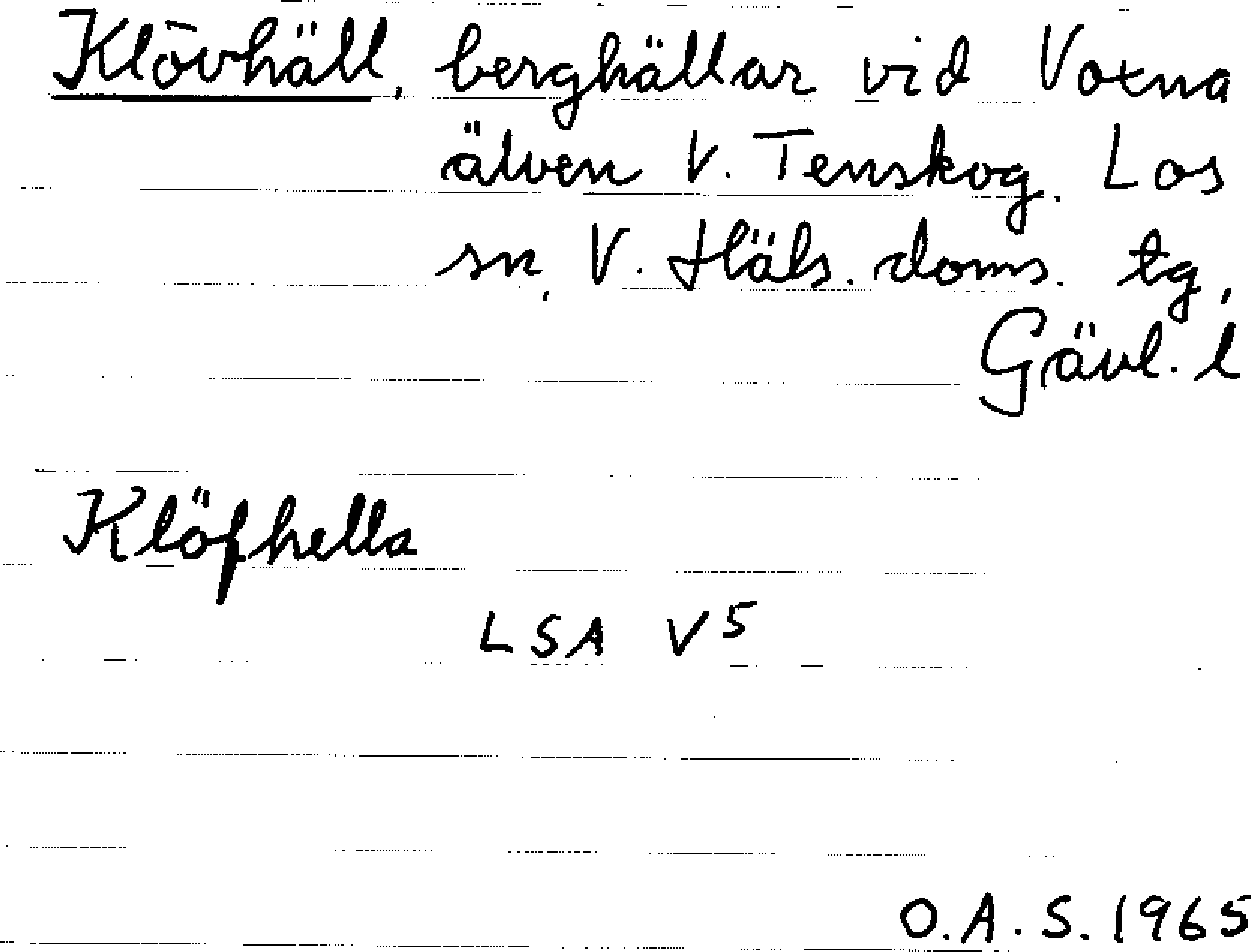 Klövhäll, berghällar vid Voxna
älven V. Tenskog. Los
sn, V. Häls. doms. tg,
Gävl. l
Klöfhella
LSA V5
O.A.S. 1965